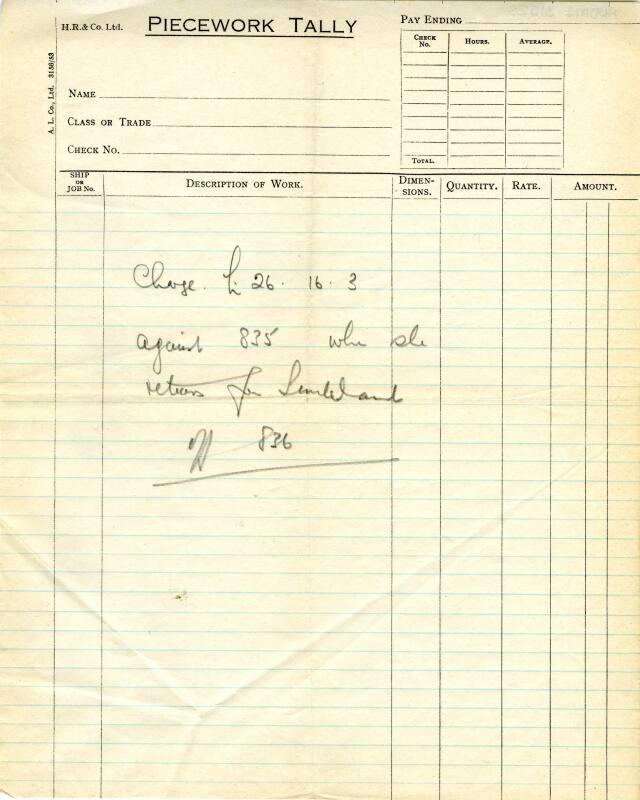 H.R.& Co. Ltd. PIECEWORK TALLY
PAY ENDING
A. L. Co., Ltd. 3156/53
CHECK No. HOURS. AVERAGE.
NAME
CLASS OR TRADE
CHECK No.
TOTAL.
SHIP OR JOB No. DESCRIPTION OF WORK. DIMENSIONS. QUANTITY. RATE. AMOUNT.
Charge 26. 16. 3
against 835 when she
returns from Sunderland
836